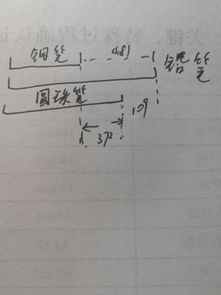 钢笔 481 铅笔
圆珠笔
109
372